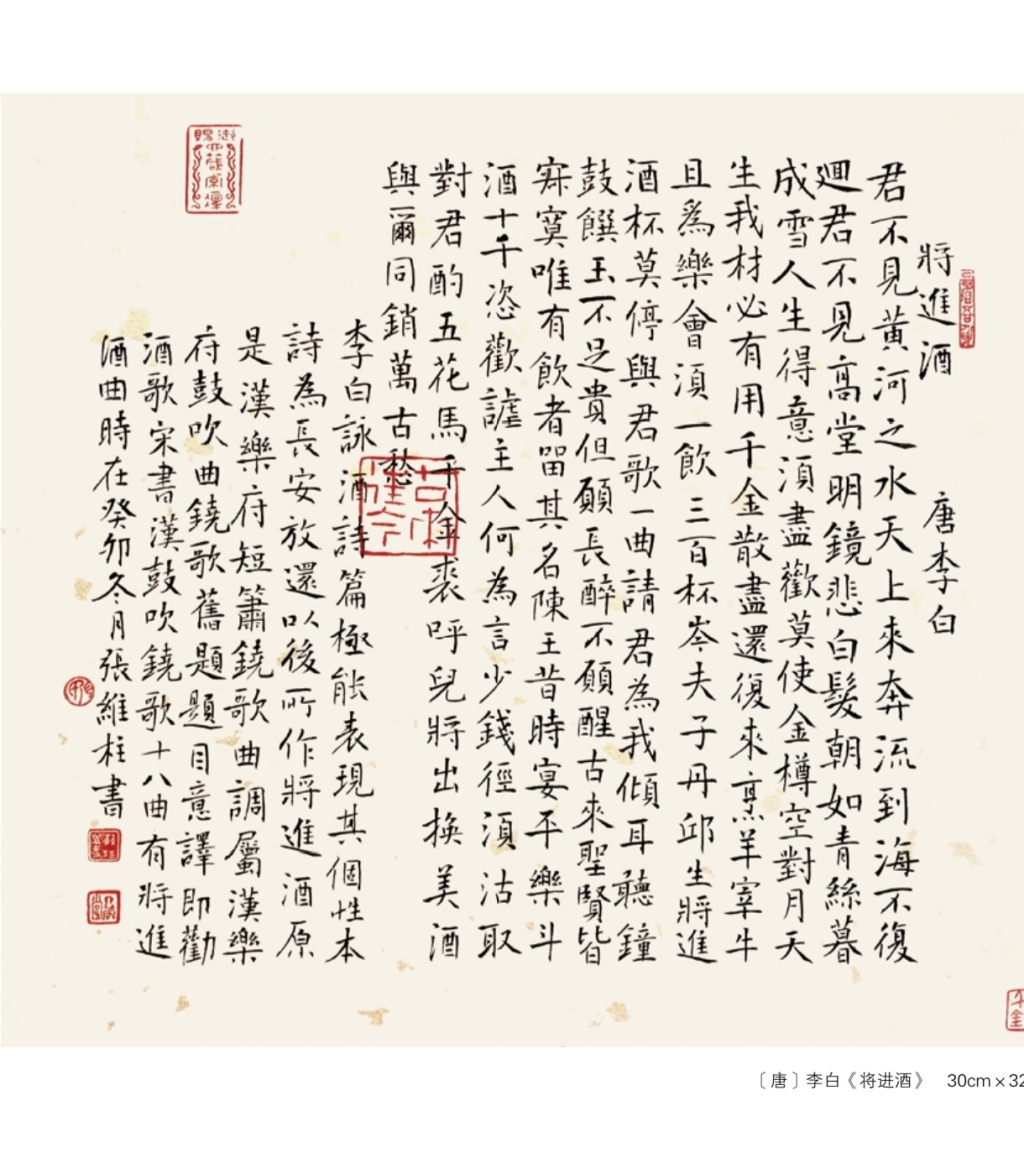 將進酒 唐李白
君不見黃河之水天上來奔流到海不復
迴君不見高堂明鏡悲白髮朝如青絲暮
成雪人生得意須盡歡莫使金樽空對月天
生我材必有用千金散盡還復來烹羊宰牛
且爲樂會須一飲三百杯岑夫子丹邱生將進
酒杯莫停與君歌一曲請君為我傾耳聽鐘
鼓饌玉不足貴但願長醉不願醒古來聖賢皆
寂寞唯有飲者留其名陳王昔時宴平樂斗
酒十千恣歡謔主人何為言少錢徑須沽取
對君酌五花馬千金裘呼兒將出換美酒
與爾同銷萬古愁
李白詠酒詩篇極能表現其個性本
詩為長安放還以後所作將進酒原
是漢樂府短簫鐃歌曲調屬漢樂
府鼓吹曲鐃歌舊題題目意譯即勸
酒歌宋書漢鼓吹鐃歌十八曲有將進
酒曲時在癸卯冬月張維柱書
〔唐〕李白《将进酒》 30cm×32